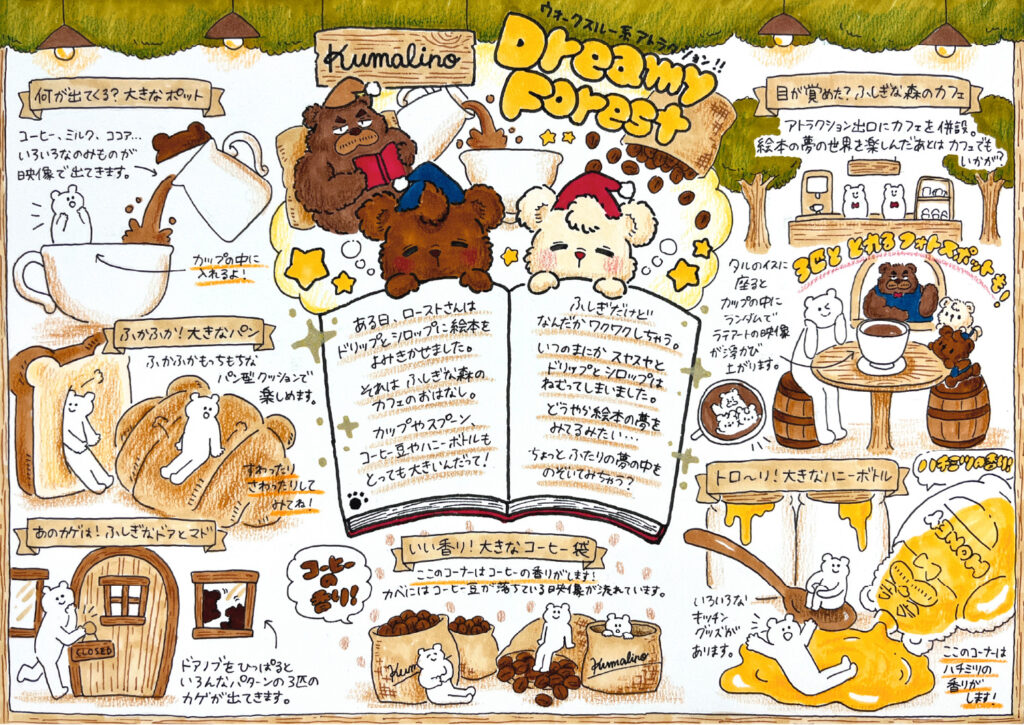 Kumalino
ウォークスルー系アトラクション!!
Dreamy
Forest
何が出てくる？大きなポット
コーヒー、ミルク、ココア…
いろいろなのみものが
映像で出てきます。
カップの中に
入れるよ！
ふかふか！大きなパン
ふかふかもっちもちな
パン型クッションで
楽しめます。
すわったり
さわったりして
みてね！
あのカゲは！ふしぎなドアとマド
CLOSED
ドアノブをひっぱると
いろんなパターンの3匹の
カゲが出てきます。
ある日、ローストさんは
ドリップとシロップに絵本を
よみきかせました。
それは ふしぎな森の
カフェのおはなし。
カップやスプーン、
コーヒー豆やハニーボトルも
とっても大きいんだって！
ふしぎだけど
なんだか ワクワクしちゃう。
いつのまにか スヤスヤと
ドリップと シロップは
ねむってしまいました。
どうやら絵本の夢を
みてるみたい…
ちょっとふたりの夢の中を
のぞいてみちゃう？
いい香り！大きなコーヒー袋
コーヒーの
香り！
ここのコーナーはコーヒーの香りがします！
カベにはコーヒー豆が落ちている映像が流れています。
Kum
Kumalino
目が覚めた？ふしぎな森のカフェ
アトラクション出口にカフェを併設。
絵本の夢の世界を楽しんだあとは カフェでも
いかが？
3匹と とれる フォトスポットも！
タルのイスに
座ると
カップの中に
ランダムで
ラテアートの映像
が浮かび
上がります。
トロ〜リ！大きなハニーボトル
ハチミツの香り！
HONEY
いろいろな
キッチン
グッズが
あります。
ここのコーナーは
ハチミツの
香りが
します！